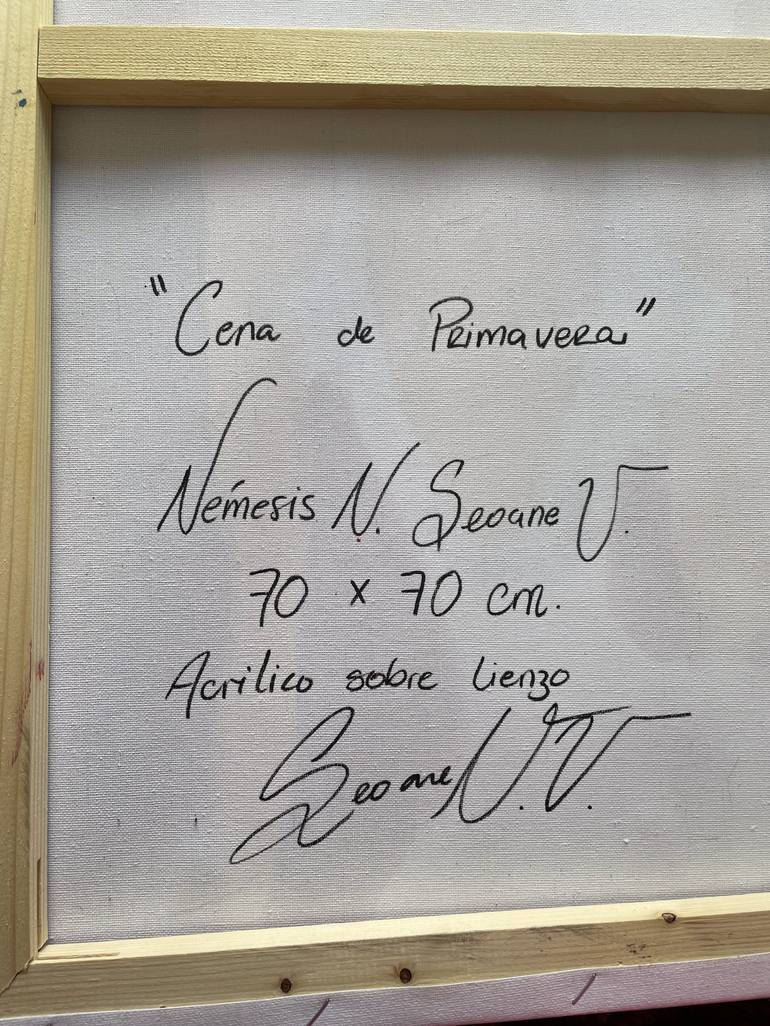 "Cena de Primavera"
Némesis N. Seoane V.
70 x 70 cm.
Acrílico sobre lienzo
Seoane N.V.